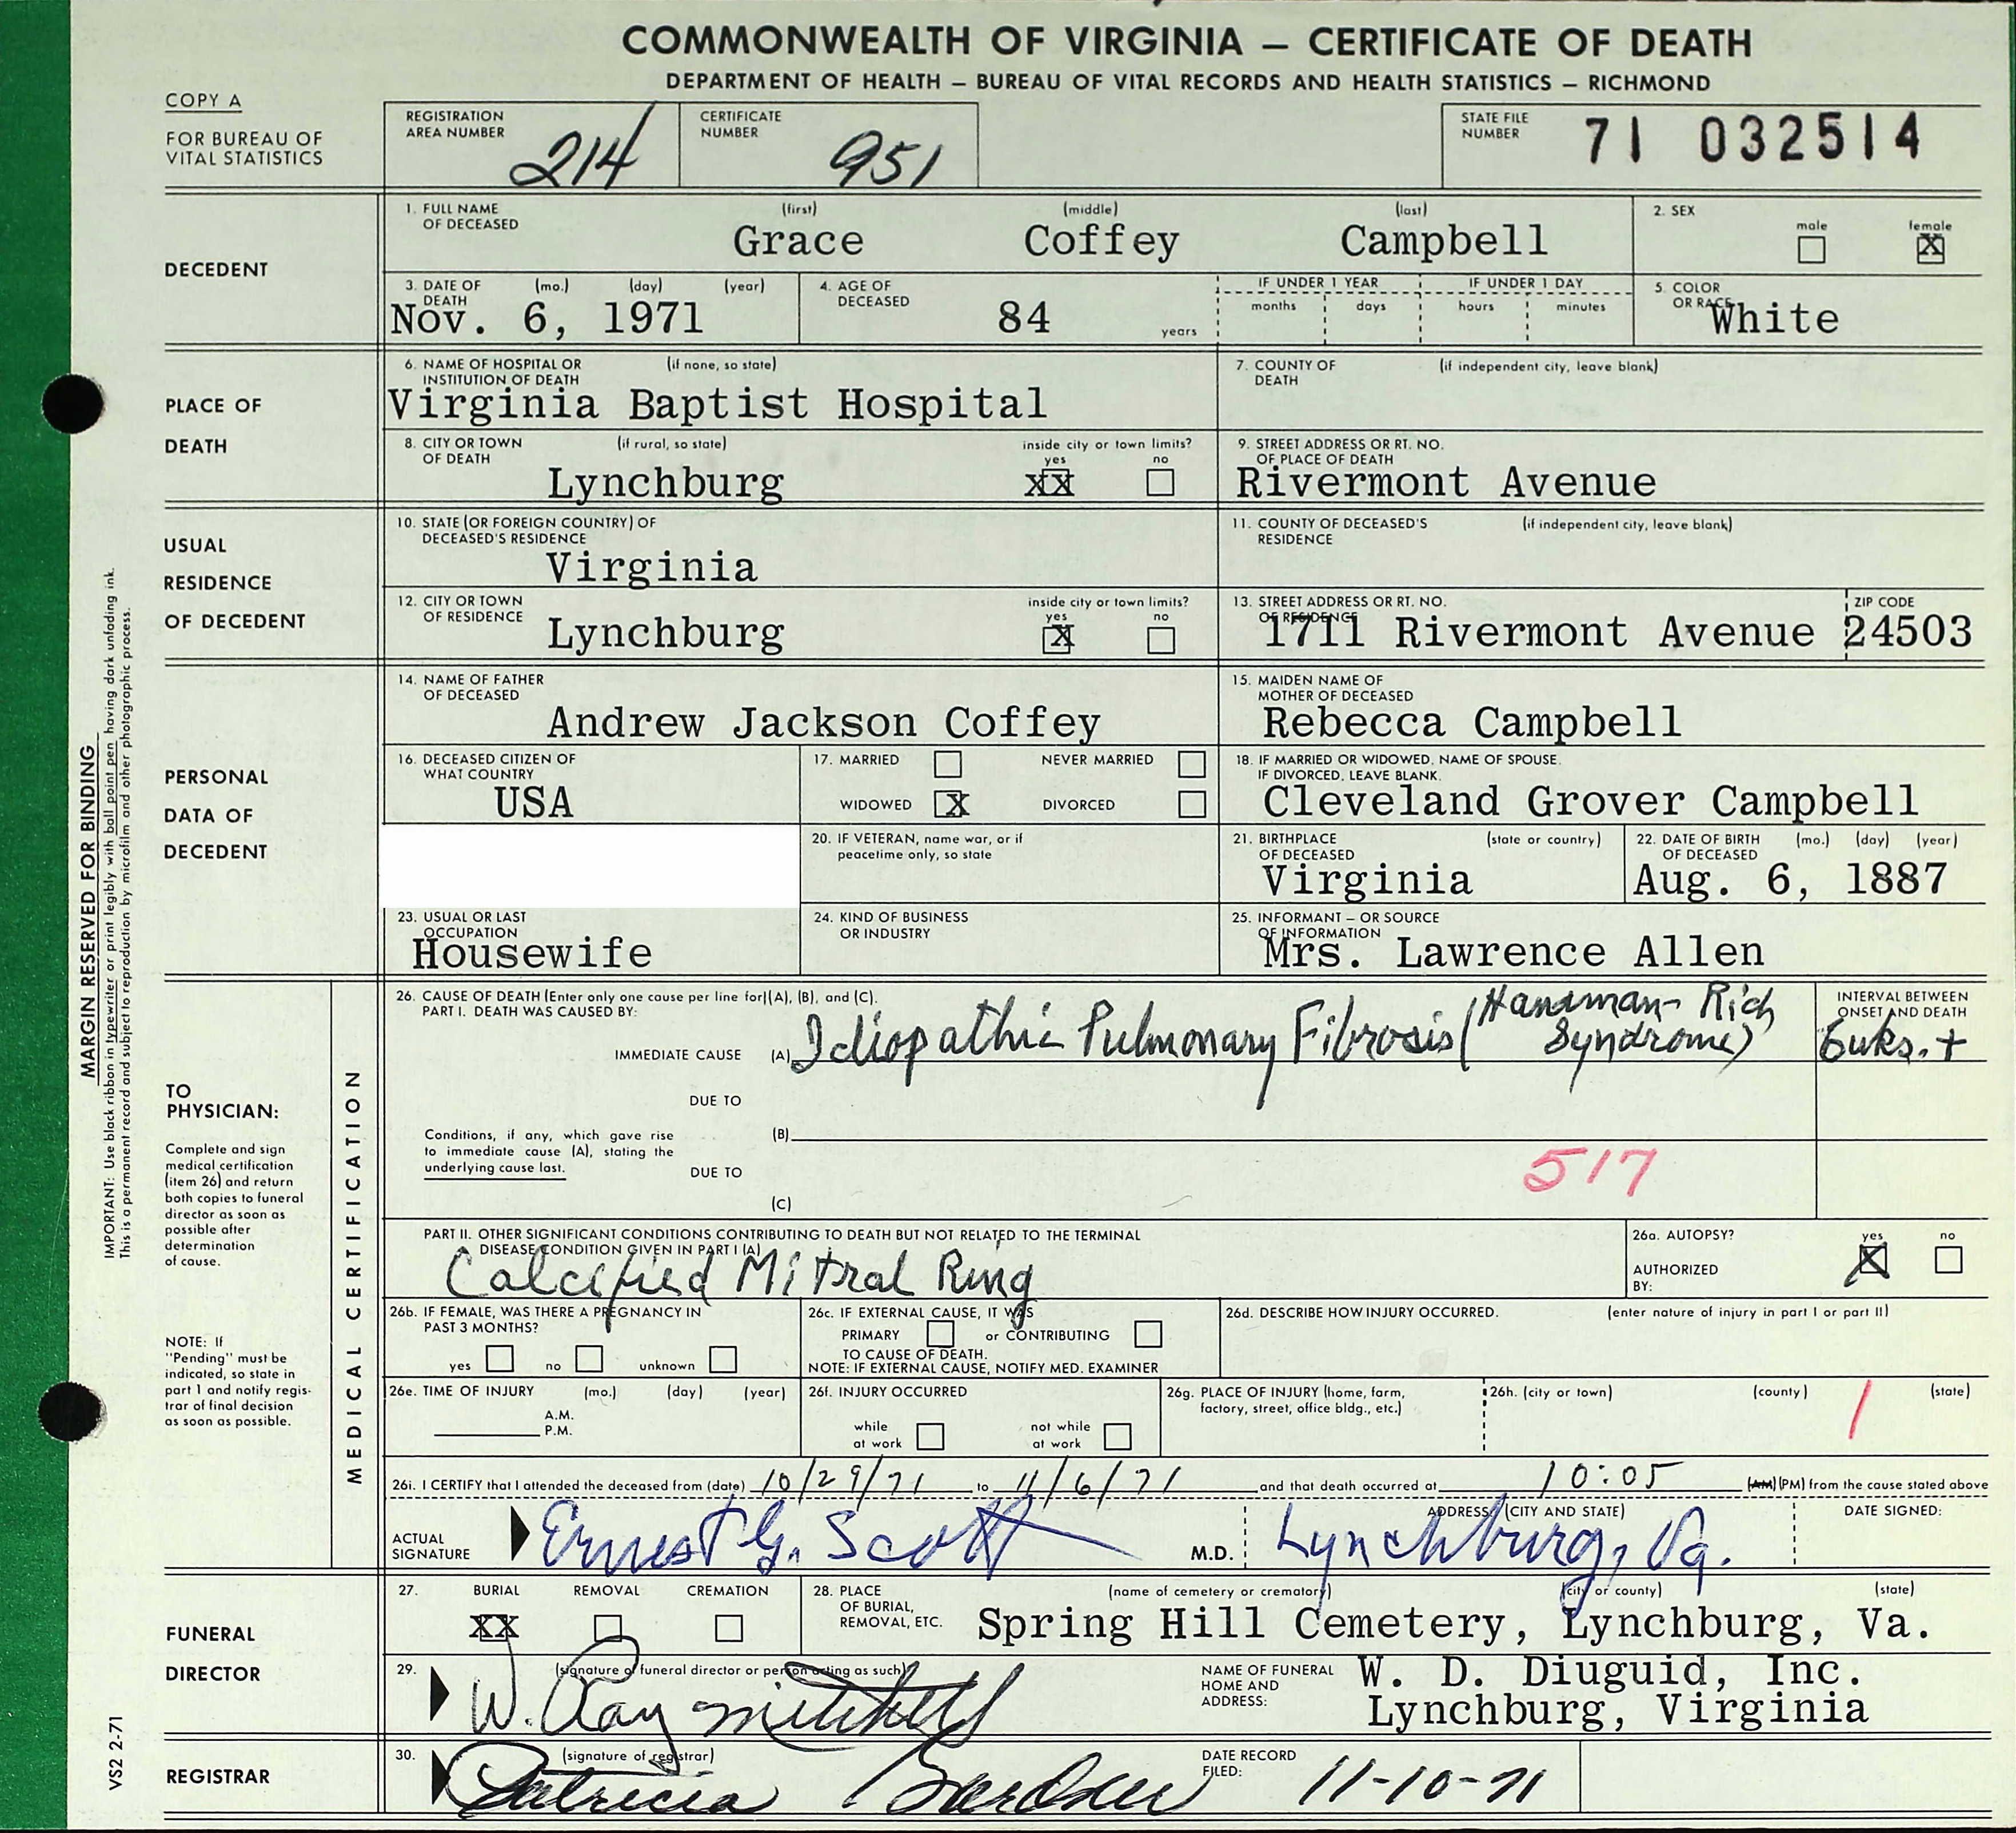 COMMONWEALTH OF VIRGINIA — CERTIFICATE OF DEATH
DEPARTMENT OF HEALTH — BUREAU OF VITAL RECORDS AND HEALTH STATISTICS — RICHMOND
COPY A
FOR BUREAU OF
VITAL STATISTICS
REGISTRATION
AREA NUMBER
214
CERTIFICATE
NUMBER
951
STATE FILE
NUMBER
71 032514
DECEDENT
1. FULL NAME
OF DECEASED
(first) (middle) (last)
Grace Coffey Campbell
2. SEX
male female
X
3. DATE OF (mo.) (day) (year)
DEATH
Nov. 6, 1971
4. AGE OF
DECEASED
84 years
IF UNDER 1 YEAR IF UNDER 1 DAY
months days hours minutes
5. COLOR
OR RACE
White
PLACE OF
DEATH
6. NAME OF HOSPITAL OR (if none, so state)
INSTITUTION OF DEATH
Virginia Baptist Hospital
7. COUNTY OF (if independent city, leave blank)
DEATH
8. CITY OR TOWN (if rural, so state) inside city or town limits?
OF DEATH yes no
Lynchburg XX
9. STREET ADDRESS OR RT. NO.
OF PLACE OF DEATH
Rivermont Avenue
USUAL
RESIDENCE
OF DECEDENT
10. STATE (OR FOREIGN COUNTRY) OF
DECEASED'S RESIDENCE
Virginia
11. COUNTY OF DECEASED'S (if independent city, leave blank)
RESIDENCE
12. CITY OR TOWN inside city or town limits?
OF RESIDENCE yes no
Lynchburg X
13. STREET ADDRESS OR RT. NO. ZIP CODE
OF RESIDENCE
1711 Rivermont Avenue 24503
PERSONAL
DATA OF
DECEDENT
14. NAME OF FATHER
OF DECEASED
Andrew Jackson Coffey
15. MAIDEN NAME OF
MOTHER OF DECEASED
Rebecca Campbell
16. DECEASED CITIZEN OF
WHAT COUNTRY
USA
17. MARRIED NEVER MARRIED
WIDOWED X DIVORCED
18. IF MARRIED OR WIDOWED, NAME OF SPOUSE.
IF DIVORCED, LEAVE BLANK.
Cleveland Grover Campbell
20. IF VETERAN, name war, or if
peacetime only, so state
21. BIRTHPLACE (state or country)
OF DECEASED
Virginia
22. DATE OF BIRTH (mo.) (day) (year)
OF DECEASED
Aug. 6, 1887
23. USUAL OR LAST
OCCUPATION
Housewife
24. KIND OF BUSINESS
OR INDUSTRY
25. INFORMANT — OR SOURCE
OF INFORMATION
Mrs. Lawrence Allen
MARGIN RESERVED FOR BINDING
IMPORTANT: Use black ribbon in typewriter or print legibly with ball point pen having dark unfading ink.
This is a permanent record and subject to reproduction by microfilm and other photographic process.
TO
PHYSICIAN:
Complete and sign
medical certification
(item 26) and return
both copies to funeral
director as soon as
possible after
determination
of cause.
NOTE: If
"Pending" must be
indicated, so state in
part 1 and notify regis-
trar of final decision
as soon as possible.
MEDICAL CERTIFICATION
26. CAUSE OF DEATH (Enter only one cause per line for (A), (B), and (C).
PART I. DEATH WAS CAUSED BY:
IMMEDIATE CAUSE (A) Idiopathic Pulmonary Fibrosis (Hamman-Rich
Syndrome)
INTERVAL BETWEEN
ONSET AND DEATH
6wks.+
DUE TO
Conditions, if any, which gave rise (B)
to immediate cause (A), stating the
underlying cause last.
DUE TO
(C)
517
PART II. OTHER SIGNIFICANT CONDITIONS CONTRIBUTING TO DEATH BUT NOT RELATED TO THE TERMINAL
DISEASE CONDITION GIVEN IN PART I (A)
Calcified Mitral Ring
26a. AUTOPSY? yes no
X
AUTHORIZED
BY:
26b. IF FEMALE, WAS THERE A PREGNANCY IN
PAST 3 MONTHS?
yes no unknown
26c. IF EXTERNAL CAUSE, IT WAS
PRIMARY or CONTRIBUTING
TO CAUSE OF DEATH.
NOTE: IF EXTERNAL CAUSE, NOTIFY MED. EXAMINER
26d. DESCRIBE HOW INJURY OCCURRED. (enter nature of injury in part I or part II)
26e. TIME OF INJURY (mo.) (day) (year)
A.M.
P.M.
26f. INJURY OCCURRED
while
at work
not while
at work
26g. PLACE OF INJURY (home, farm,
factory, street, office bldg., etc.)
26h. (city or town) (county) (state)
1
26i. I CERTIFY that I attended the deceased from (date) 10/29/71 to 11/6/71 and that death occurred at 10:05 (AM) (PM) from the cause stated above
ACTUAL
SIGNATURE
Ernest G. Scott M.D.
ADDRESS: (CITY AND STATE)
Lynchburg, Va.
DATE SIGNED:
FUNERAL
DIRECTOR
27. BURIAL REMOVAL CREMATION
XX
28. PLACE (name of cemetery or crematory) (city or county) (state)
OF BURIAL,
REMOVAL, ETC.
Spring Hill Cemetery, Lynchburg, Va.
29. (signature of funeral director or person acting as such)
W. Ray Mitchell
NAME OF FUNERAL
HOME AND
ADDRESS:
W. D. Diuguid, Inc.
Lynchburg, Virginia
REGISTRAR
30. (signature of registrar)
Patricia Gardner
DATE RECORD
FILED:
11-10-71
VS2 2-71